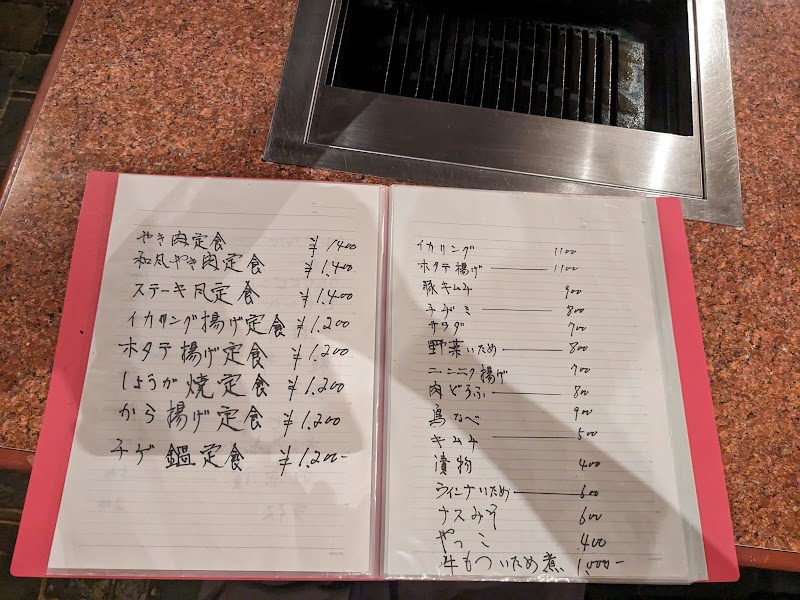 やき肉定食 ¥1400
和風やき肉定食 ¥1.400
ステーキ風定食 ¥1.400
イカリング揚げ定食 ¥1.200
ホタテ揚げ定食 ¥1.200
しょうが焼定食 ¥1.200
から揚げ定食 ¥1.200
チゲ鍋定食 ¥1.200-
イカリング 1100
ホタテ揚げ 1100
豚キムチ 900
チヂミ 800
サラダ 700
野菜いため 800
ニンニク揚げ 700
肉どうふ 800
鳥なべ 900
キムチ 500
漬物 400
ウィンナいため 600
ナスみそ 600
やっこ 400
牛もついため煮 1,000-